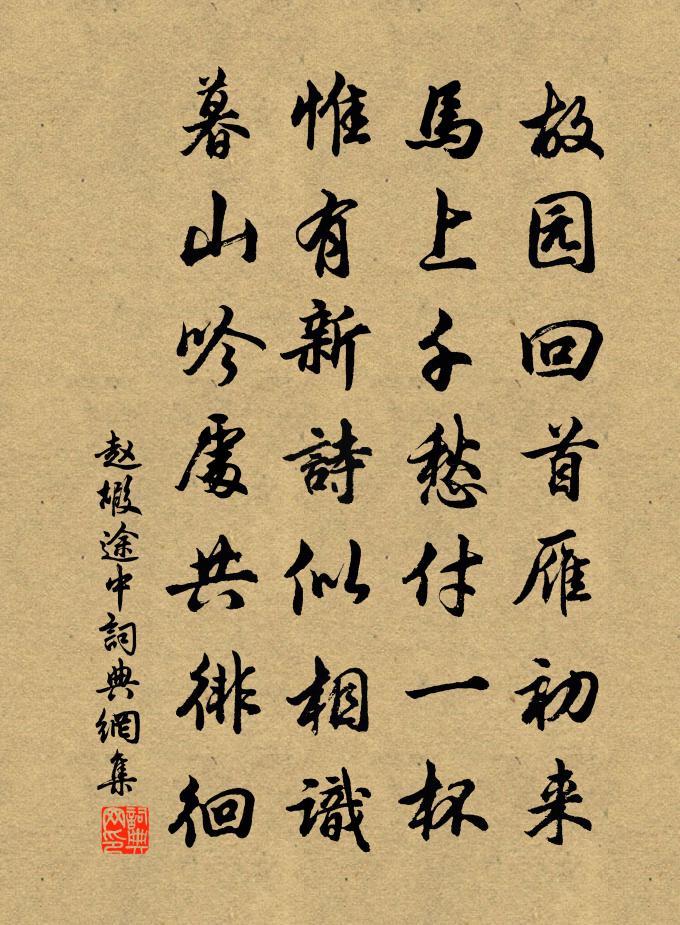 故园回首雁初来
馬上千愁付一杯
惟有新詩似相識
暮山吟處共徘徊
赵嘏途中詞典網集
詞典网印